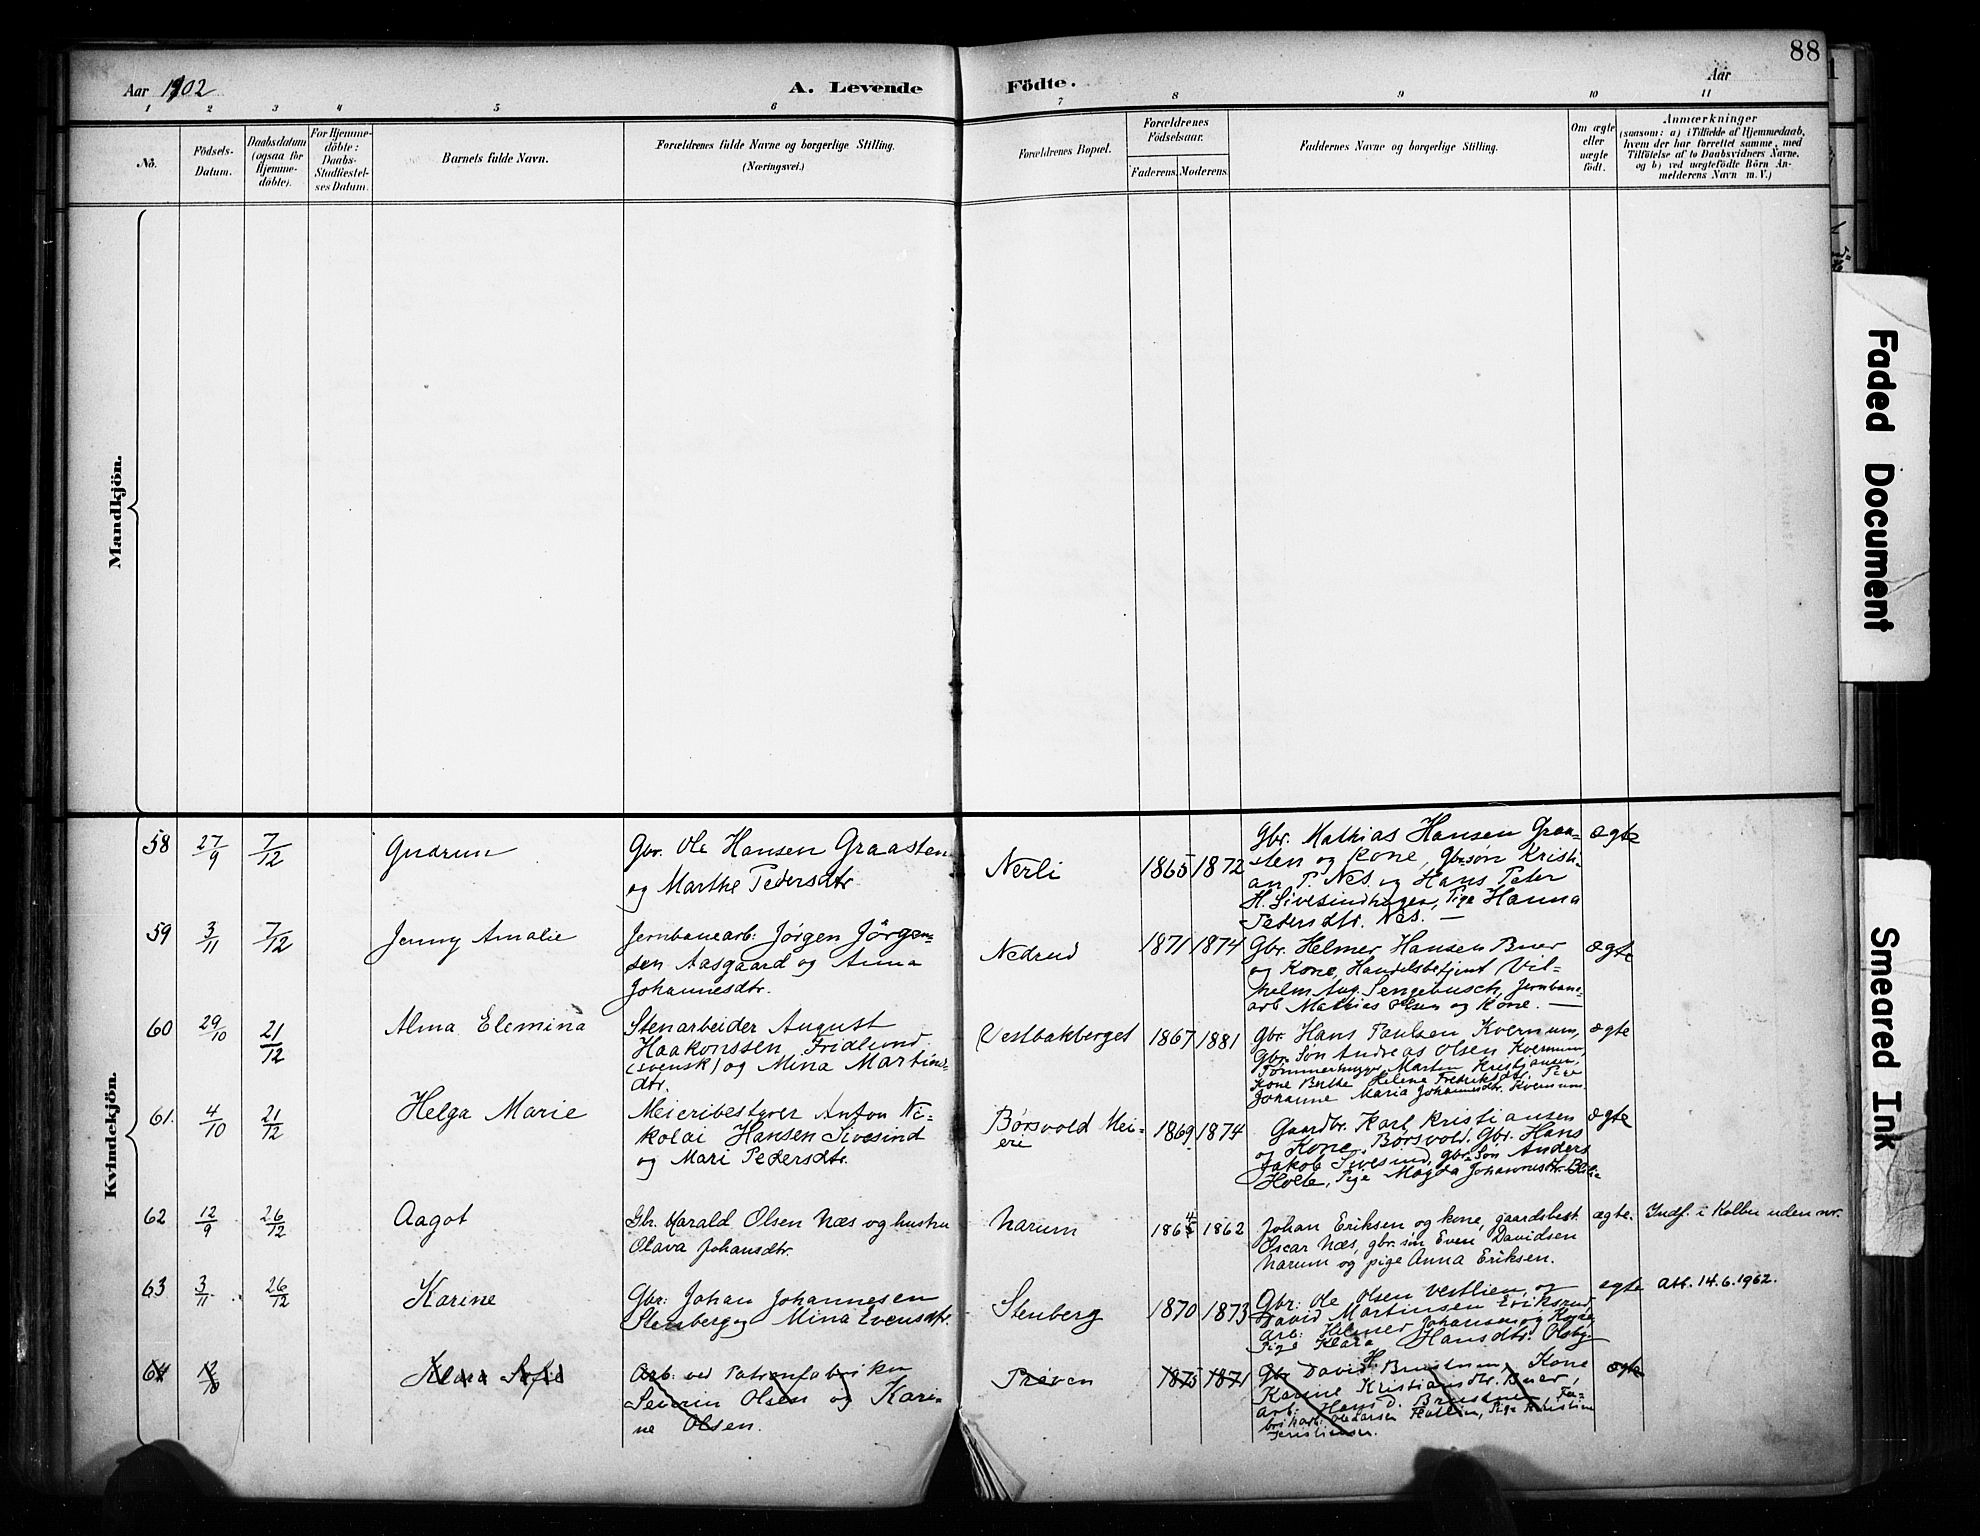 88
Aar 1902
A. Levende Födte.
Aar
1 2 3 4 5 6 7 8 9 10 11
No.
Födsels-Datum.
Daabsdatum (ogsaa for Hjemme-döbte).
For Hjemme-döbte: Daabs-Stadfæstel-ses Datum.
Barnets fulde Navn.
Forældrenes fulde Navne og borgerlige Stilling.
(Næringsvei.)
Forældrenes Bopæl.
Forældrenes Födselsaar.
Faderens. Moderens.
Faddernes Navne og borgerlige Stilling.
Om ægte eller uægte födt.
Anmærkninger
(saasom: a) i Tilfælde af Hjemmedaab, hvem der har forrettet samme, med Tilföielse af to Daabsvidners Navne, og b) ved uægtefödte Börn An-melderens Navn m. V.)
Mandkjön.
Kvindekjön.
58 27/9 7/12 Gudrun
Gbr. Ole Hansen Graasten
og Marthe Pedersdtr.
Nerli 1865 1872
Gbr. Mathias Hansen Graa-
sten og Kone, Gbr.søn Kristi-
an P. Nes og Hans Peter
H. Sivesindhagen, Pige Hanna
Pedersdtr. Nes. —
ægte
59 3/11 7/12 Jenny Amalie
Jernbanearb: Jörgen Jörgen-
sen Aasgaard og Anna
Johannesdtr.
Nedrud 1871 1874
Gbr. Helmer Hansen Buer
og Kone, Handelsbetjent Vil-
helm Aug. Sengebusch, Jernbane-
arb Mathias Olsen og Kone. —
ægte
60 29/10 21/12 Alma Elemina
Stenarbeider August
Haakonssen Fridlund
(svensk) og Mina Martins-
dtr.
Vestbakberget 1867 1881
Gbr. Hans Paulsen Kvernum,
Gbr. Søn Andreas Olsen Kvernum,
Tømmerhugger Marten Kristiansen,
Kone Helene Fredriksdtr. Pige
Johanne Maria Johannesdtr. Kvernum.
ægte
61. 4/10 21/12 Helga Marie
Meieribestyrer Anton Ni-
kolai Hansen Sivesind
og Mari Pedersdtr.
Børsvold Mei-
eri
1869 1874
Gaardbr. Karl Kristiansen
og Kone, Børsvold, Gbr. Hans
Jakob Sivesind, gbr. Søn Anders
Holte, Pige Magda Johannesdtr.
ægte
62 12/9 26/12 Aagot
Gbr. Harald Olsen Næs og hustru
Olava Johansdtr.
Narum 1864 1862
Johan Eriksen og kone, gaardsbest.
Oscar Næs, gbr. søn Even Davidsen
Narum og pige Anna Eriksen.
ægte. Indf. i Kolbu uden nr.
63 3/11 26/12 Karine
Gbr: Johan Johannesen
Stenberg og Mina Evensdtr.
Stenberg 1870 1873
Gbr: Ole Olsen Vestlien, og
David Martinsen Eriksrud,
Arb: Helmer Johansen og Kone,
Pige Klara Hansdtr. Osby
egte Att. 14.6.1962.
64 12/10 Klara Sofie
Arb: ved Patronfabriken
Severin Olsen og Kari-
ne Olsen.
Prøven 1875 1871
Gbr. David H. Brustuen, Kone
Karine Kristiansdtr. Buer,
Arb: Hans D. Brustuen, Fa-
brikarb: Ole Larsen Kollien, Pige
Kristiansen.
ægte
Faded Document
Smeared Ink